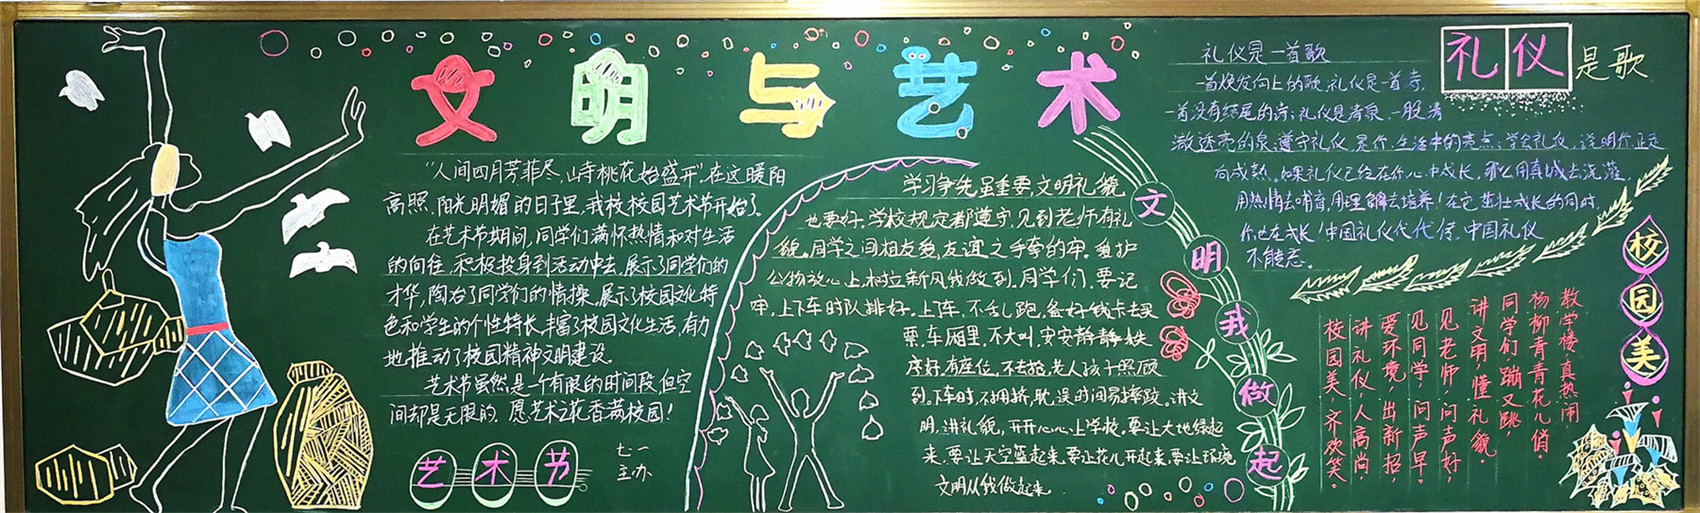 文明与艺术
“人间四月芳菲尽,山寺桃花始盛开。在这暖阳
高照、阳光明媚的日子里,我校校园艺术节开始了。
在艺术节期间,同学们满怀热情和对生活
的向往,积极投身到活动中去,展示了同学们的
才华,陶冶了同学们的情操,展示了校园文化特
色和学生的个性特长,丰富了校园文化生活,有力
地推动了校园精神文明建设。
艺术节虽然是一个有限的时间段,但空
间却是无限的。愿艺术之花香满校园!
艺术节
七一
主办
学习争先虽重要,文明礼貌
也要好。学校规定都遵守,见到老师有礼
貌。同学之间相友爱,友谊之手牵的牢。爱护
公物放心上,树立新风我做到。同学们,要记
牢,上下车时队排好。上车,不乱跑,备好钱卡去买
票,车厢里,不大叫,安安静静秩
序好。有座位,不去抢,老人孩子照顾
到。下车时,不拥挤,耽误时间易摔跤。讲文
明,讲礼貌,开开心心上学校。要让大地绿起
来,要让天空蓝起来,要让花儿开起来,要让环境
文明从我做起来。
文明我做起
礼仪是歌
礼仪是一首歌
一首焕发向上的歌,礼仪是一首诗,
一首没有结尾的诗;礼仪是清泉,一股清
澈透亮的泉。遵守礼仪,是你生活中的亮点;学会礼仪,说明你正走
向成熟。如果礼仪已经在你心中成长,那么用真诚去浇灌,
用热情去哺育,用理解去培养!在它茁壮成长的同时,
你也在成长!中国礼仪代代传,中国礼仪
不能忘。
校园美
教学楼,真热闹,
杨柳青青花儿俏。
同学们,蹦又跳,
讲文明,懂礼貌。
见老师,问声好,
见同学,问声早。
爱环境,出新招,
讲礼仪,人高尚,
校园美,齐欢笑。